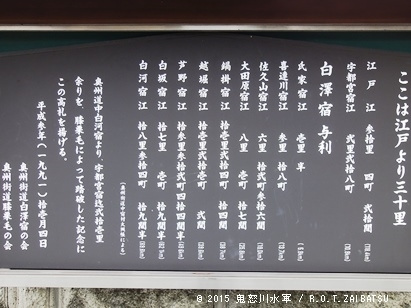 ここは江戸より三十里
江戸江 参拾里 四町 弐拾間
宇都宮宿江 弐里弐拾八町
白澤宿 与利
氏家宿江 壱里半
喜連川宿江 参里 拾八町
佐久山宿江 六里 拾弐町参拾六間
大田原宿江 八里 壱町 拾七間
鍋掛宿江 拾壱里四町 拾七間
越堀宿江 拾壱里弐拾壱町 弐間
芦野宿江 拾参里四町 四拾四間半
白坂宿江 拾七里 壱町 拾九間半
白河宿江 拾八里参拾四町 拾九間半
奥州道中白河宿より、宇都宮宿迄弐拾壱里
余りを、膝栗毛によって踏破した記念に
この高札を掲げる。
平成参年（一九九一）拾壱月四日
奥州街道白澤宿の会
奥州街道膝栗毛の会
© 2015 鬼怒川水軍 / R.O.T.ZAIBATSU